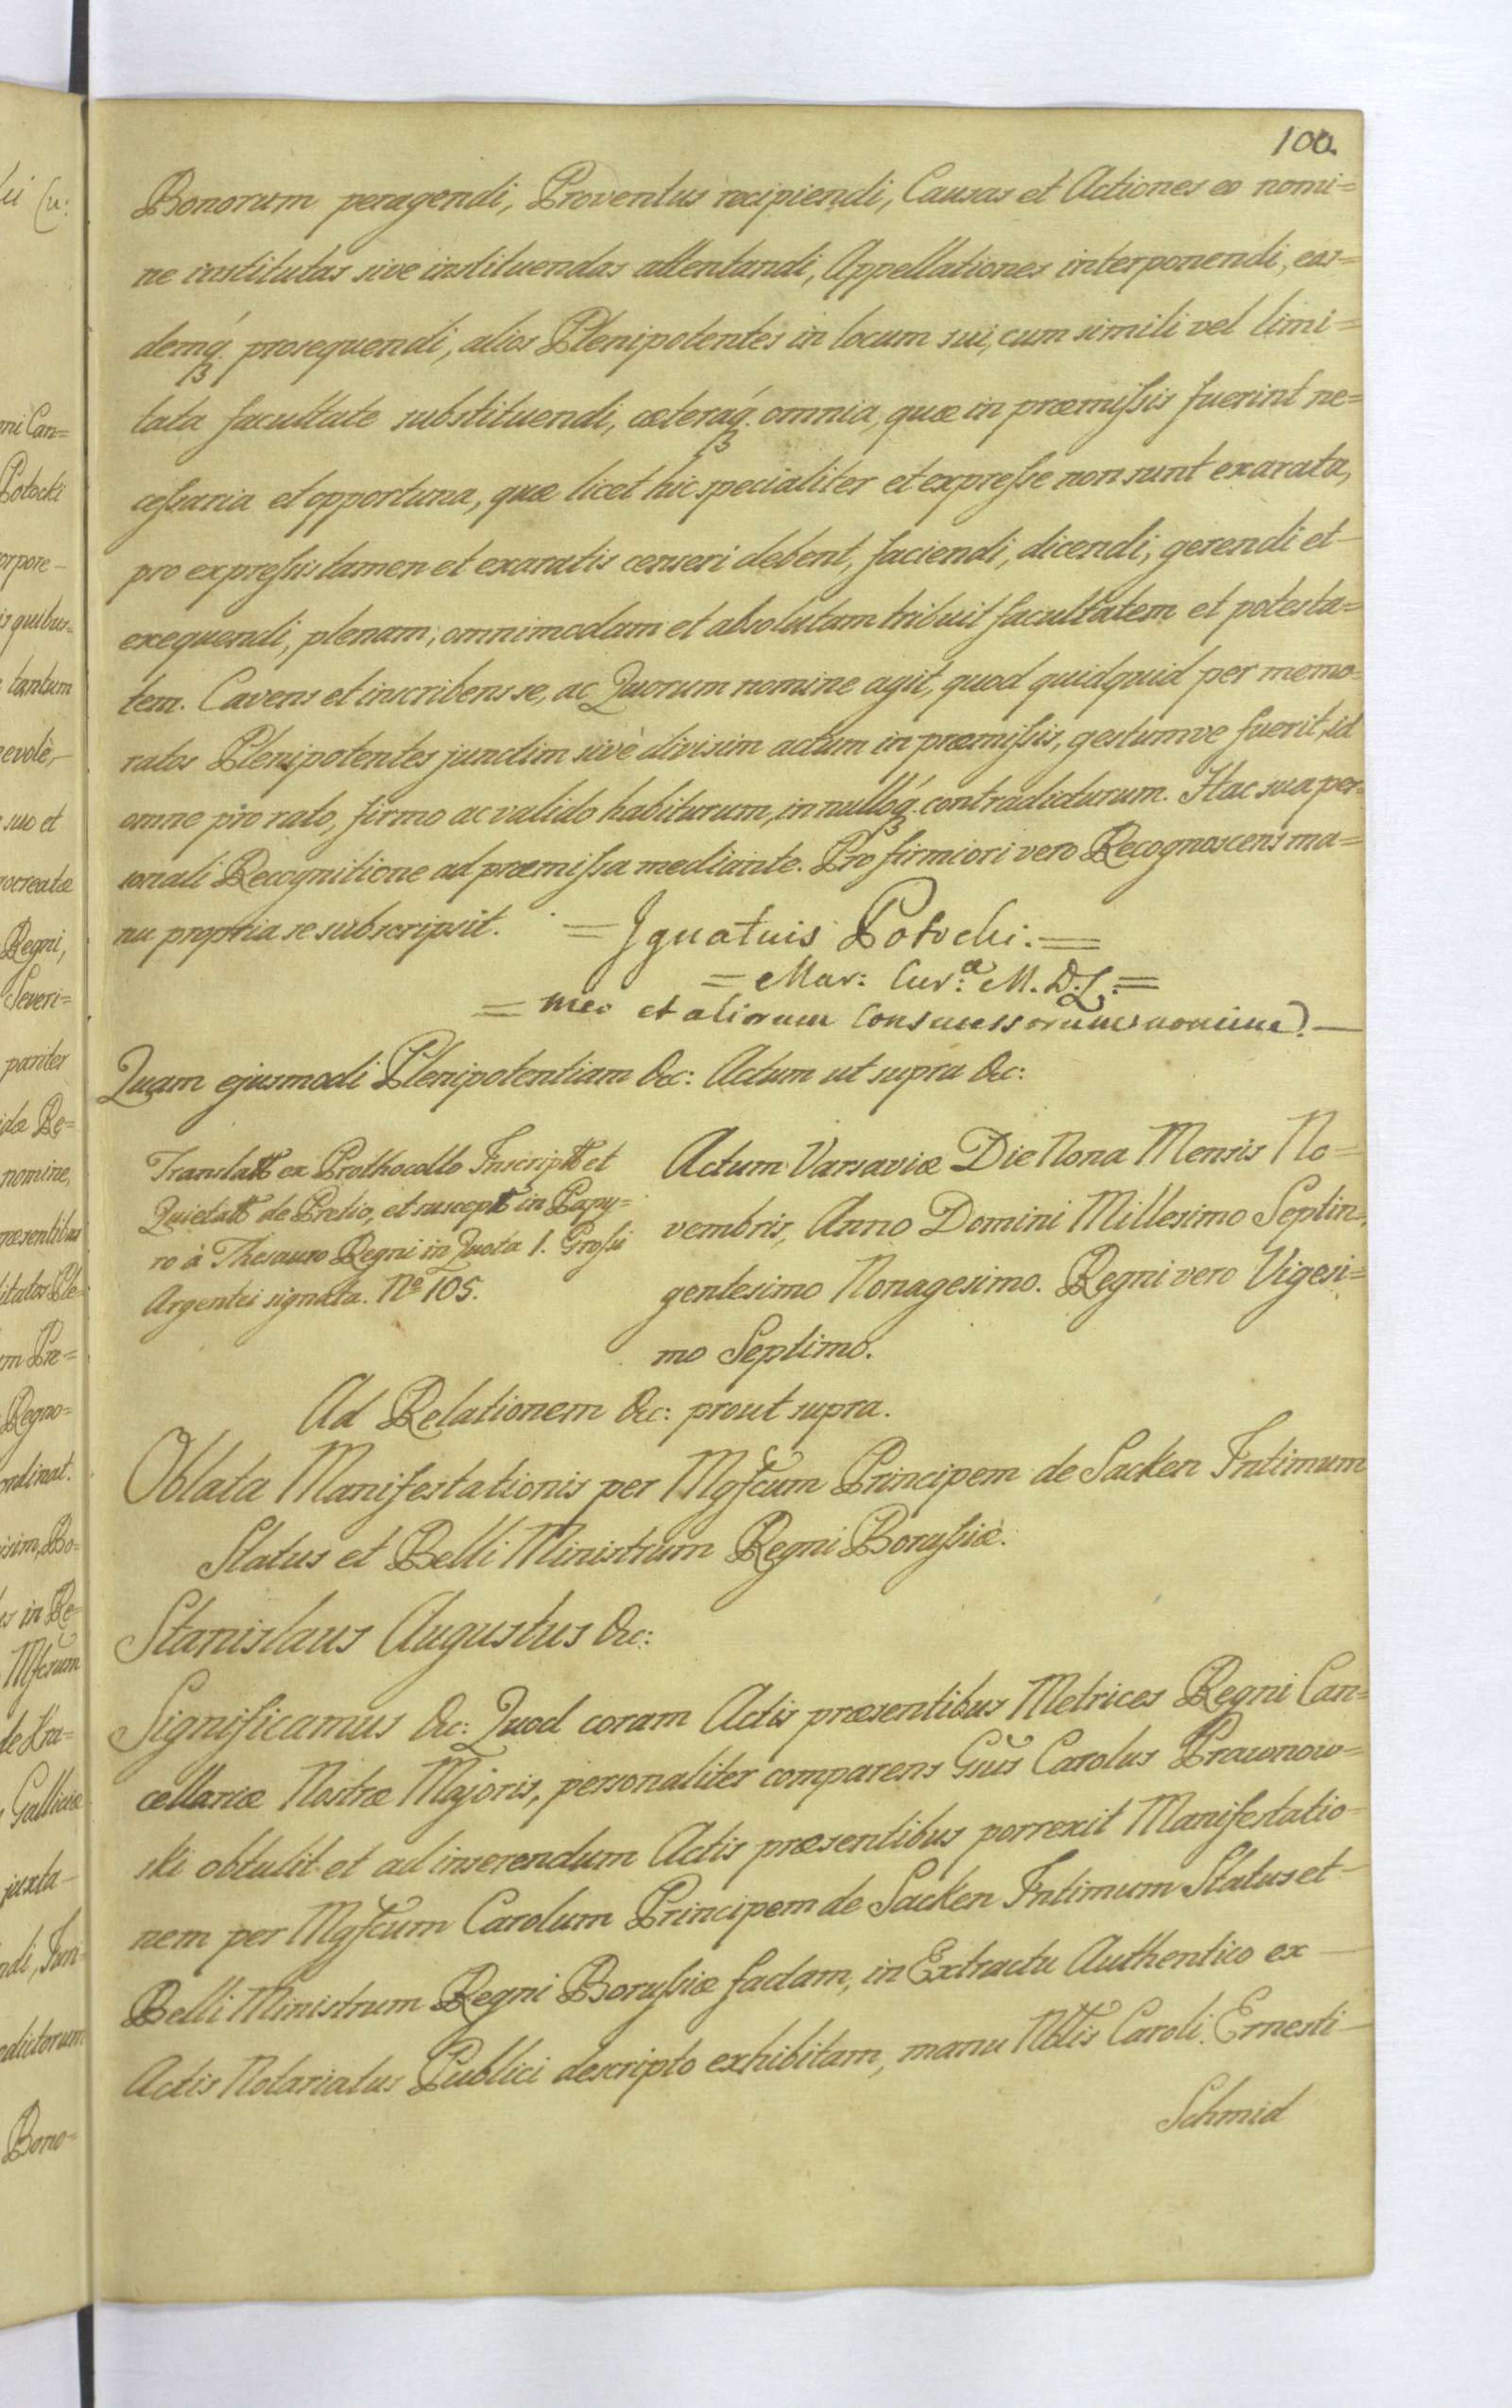 100.
Bonorum peragendi, Proventus recipiendi, Causas et Actiones eo nomi=
ne institutas sive instituendas attentandi, Appellationes interponendi, eas=
demq́ꝫ prosequendi, alios Plenipotentes in locum sui, cum simili vel limi=
tata facultate substituendi, cæteraq́ꝫ omnia, quæ in præmissis fuerint ne=
cessaria et opportuna, quæ licet hic specialiter et expresse non sunt exarata,
pro expressis tamen et exaratis censeri debent, faciendi, dicendi, gerendi et
exequendi, plenam, omnimodam et absolutam tribuit facultatem et potesta=
tem. Cavens et inscribens se, ac Quorum nomine agit, quod quidquid per memo=
ratos Plenipotentes junctim sivè divisim actum in præmissis, gestumve fuerit, id
omne pro rato, firmo ac valido habiturum, in nulloq́ꝫ contradicturum. Hac sua per=
sonali Recognitione ad præmissa mediante. Pro firmiori vero Recognoscens ma=
nu propria se subscripsit. = Ignatuis Potocki. =
= Mar: Cur:a M. D. L. =
= meo et aliorum Consucessorum nomine. —
Quam ejusmodi Plenipotentiam &c: Actum ut supra &c:
Translatt ex Prothocollo Inscriptt et
Quietatt de Prelio, et susceptt in Papy=
ro à Thesauro Regni in Quota 1. Grossi
Argentei signata. No 105.
Actum Varsaviæ Die Nona Mensis No=
vembris, Anno Domini Millesimo Septin=
gentesimo Nonagesimo. Regni vero Vigesi=
mo Septimo.
Ad Relationem &c: prout supra.
Oblata Manifestationis per Mgfcum Principem de Sacken Intimum
Status et Belli Ministrum Regni Borussiæ.
Stanislaus Augustus &c:
Significamus &c: Quod coram Actis præsentibus Metrices Regni Can=
cellariæ Nostræ Majoris, personaliter comparens Gsus Carolus Prawonow=
ski obtulit et ad inserendum Actis præsentibus porrexit Manifestatio=
nem per Mgfcum Carolum Principem de Sacken Intimum Status et
Belli Ministrum Regni Borussiæ factam, in Extractu Authentico ex
Actis Notariatus Publici descripto exhibitam, manu Nbtis Caroli Ernesti
Schmid